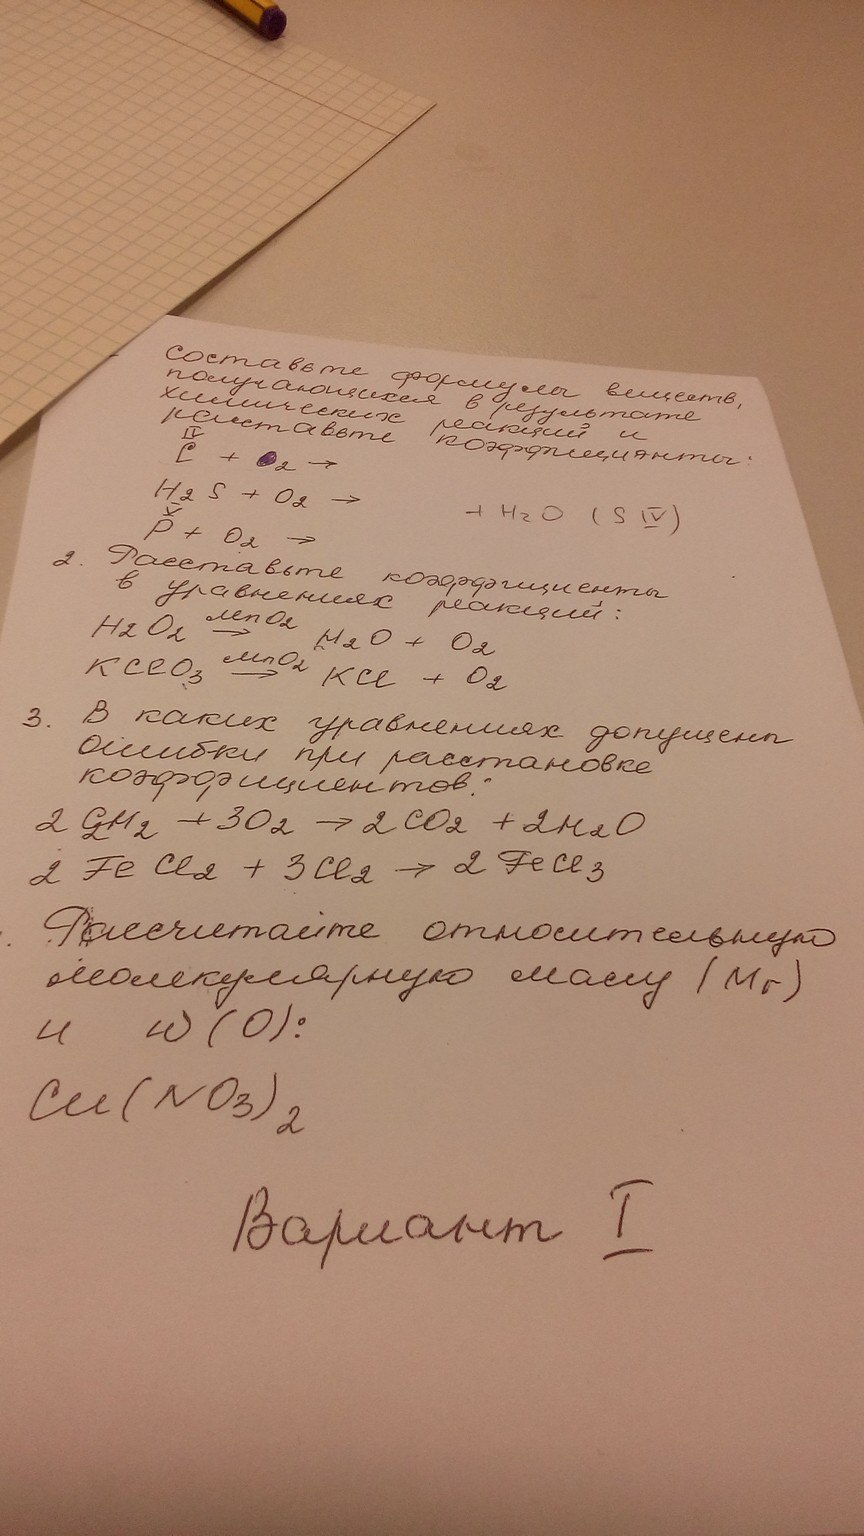 Составьте формулы веществ,
получающихся в результате
химических реакций и
расставьте коэффициянты:
IV
C + O2 →
H2S + O2 → + H2O (S IV)
V
P + O2 →
2. Расставьте коэффициенты
в уравнениях реакций:
H2O2 MnO2 → H2O + O2
KClO3 MnO2 → KCl + O2
3. В каких уравнениях допущены
ошибки при расстановке
коэффициентов:
2 C2H2 + 3O2 → 2CO2 + 2H2O
2 FeCl2 + 3Cl2 → 2 FeCl3
Рассчитайте относительную
молекулярную массу (Mr)
и w(O):
Cu(NO3)2
Вариант I